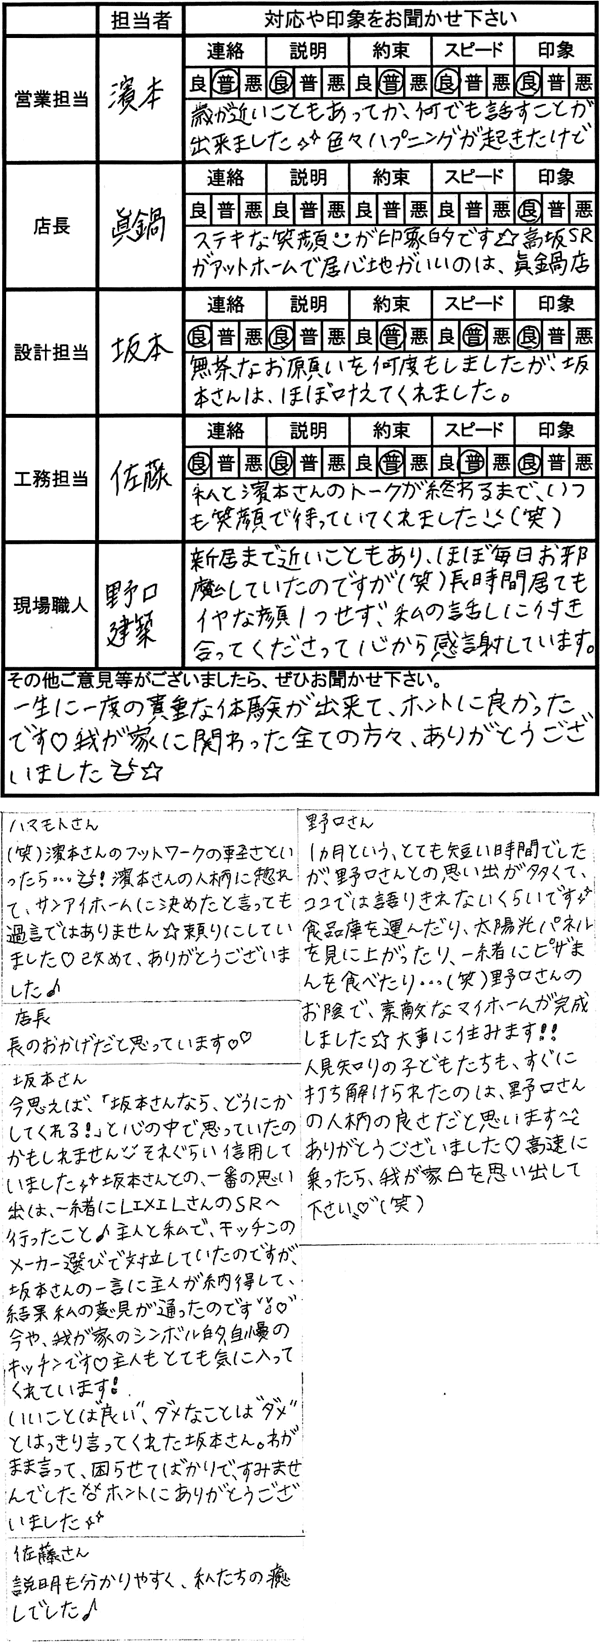 担当者 対応や印象をお聞かせ下さい
営業担当 濱本
連絡 説明 約束 スピード 印象
良 普 悪 良 普 悪 良 普 悪 良 普 悪 良 普 悪
歳が近いこともあってか、何でも話すことが
出来ました☆ 色々ハプニングが起きたけど
店長 眞鍋
連絡 説明 約束 スピード 印象
良 普 悪 良 普 悪 良 普 悪 良 普 悪 良 普 悪
ステキな笑顔が印象的です☆高坂SR
がアットホームで居心地がいいのは、眞鍋店
設計担当 坂本
連絡 説明 約束 スピード 印象
良 普 悪 良 普 悪 良 普 悪 良 普 悪 良 普 悪
無茶なお願いを何度もしましたが、坂
本さんは、ほぼ叶えてくれました。
工務担当 佐藤
連絡 説明 約束 スピード 印象
良 普 悪 良 普 悪 良 普 悪 良 普 悪 良 普 悪
私と濱本さんのトークが終わるまで、いつ
も笑顔で待っていてくれました(笑)
現場職人 野口
建築
新居まで近いこともあり、ほぼ毎日お邪
魔していたのですが(笑)長時間居ても
イヤな顔1つせず、私の話しに付き
合ってくださって心から感謝しています。
その他ご意見等がございましたら、ぜひお聞かせ下さい。
一生に一度の貴重な体験が出来て、ホントに良かった
です♡我が家に関わった全ての方々、ありがとうござ
いました☆
ハマモトさん
(笑)濱本さんのフットワークの軽さとい
ったら…! 濱本さんの人柄に惚れ
て、サンアイホームに決めたと言っても
過言ではありません☆頼りにしてい
ました♡改めて、ありがとうございま
した♪
店長
長のおかげだと思っています♡♡
坂本さん
今思えば、「坂本さんなら、どうにか
してくれる!」と心の中で思っていたの
かもしれません それぐらい信用して
いました 坂本さんとの、一番の思い
出は、一緒にLIXILさんのSRへ
行ったこと♪主人と私で、キッチンの
メーカー選びで対立していたのですが、
坂本さんの一言に主人が納得して、
結果私の意見が通ったのです♡
今や、我が家のシンボル的自慢の
キッチンです♡主人もとても気に入って
くれています!
いいことは"良い"、ダメなことは"ダメ"
とはっきり言ってくれた坂本さん。わが
まま言って、困らせてばかりで、すみませ
んでした ホントにありがとうござ
いました
佐藤さん
説明も分かりやすく、私たちの癒
しでした♪
野口さん
1ヵ月という、とても短い時間でした
が、野口さんとの思い出が多くて、
ココでは語りきれないくらいです
食品庫を運んだり、太陽光パネル
を見に上がったり、一緒にピザま
んを食べたり…(笑)野口さんの
お陰で、素敵なマイホームが完成
しました☆大事に住みます!!
人見知りの子どもたちも、すぐに
打ち解けられたのは、野口さん
の人柄の良さだと思います^^
ありがとうございました♡高速に
乗ったら、我が家を思い出して
下さい♡(笑)